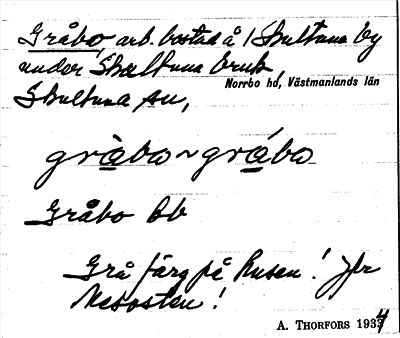 Gråbo, arb. bostad å 1 Skultuna by
under Skultuna bruk,
Norrbo hd, Västmanlands län
Skultuna sn,
gràbo ~ gråbo
Gråbo Bb
Grå färg på husen! Jfr
Mesosten!
A. THORFORS 1934